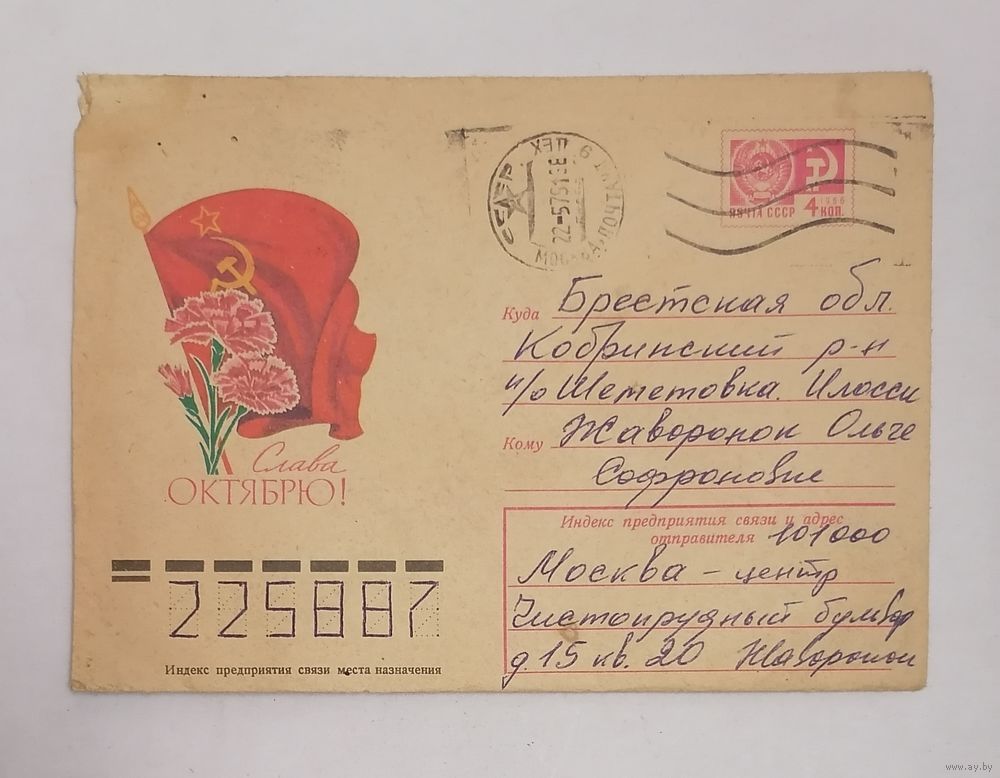 СССР
МОСКВА ПОЧТАМТ
ЦЕХ 9
22-5751
ПОЧТА СССР
1966
4 КОП.
Куда Брестская обл.
Кобринский р-н
п/о Шеметовка. Илосси
Кому Жаворонок Ольге
Софроновне
Слава
ОКТЯБРЮ!
Индекс предприятия связи и адрес
отправителя 101000
Москва - центр
Чистопрудный бульвар
д. 15 кв. 20 Жаворонок
225887
Индекс предприятия связи места назначения
www.ay.by